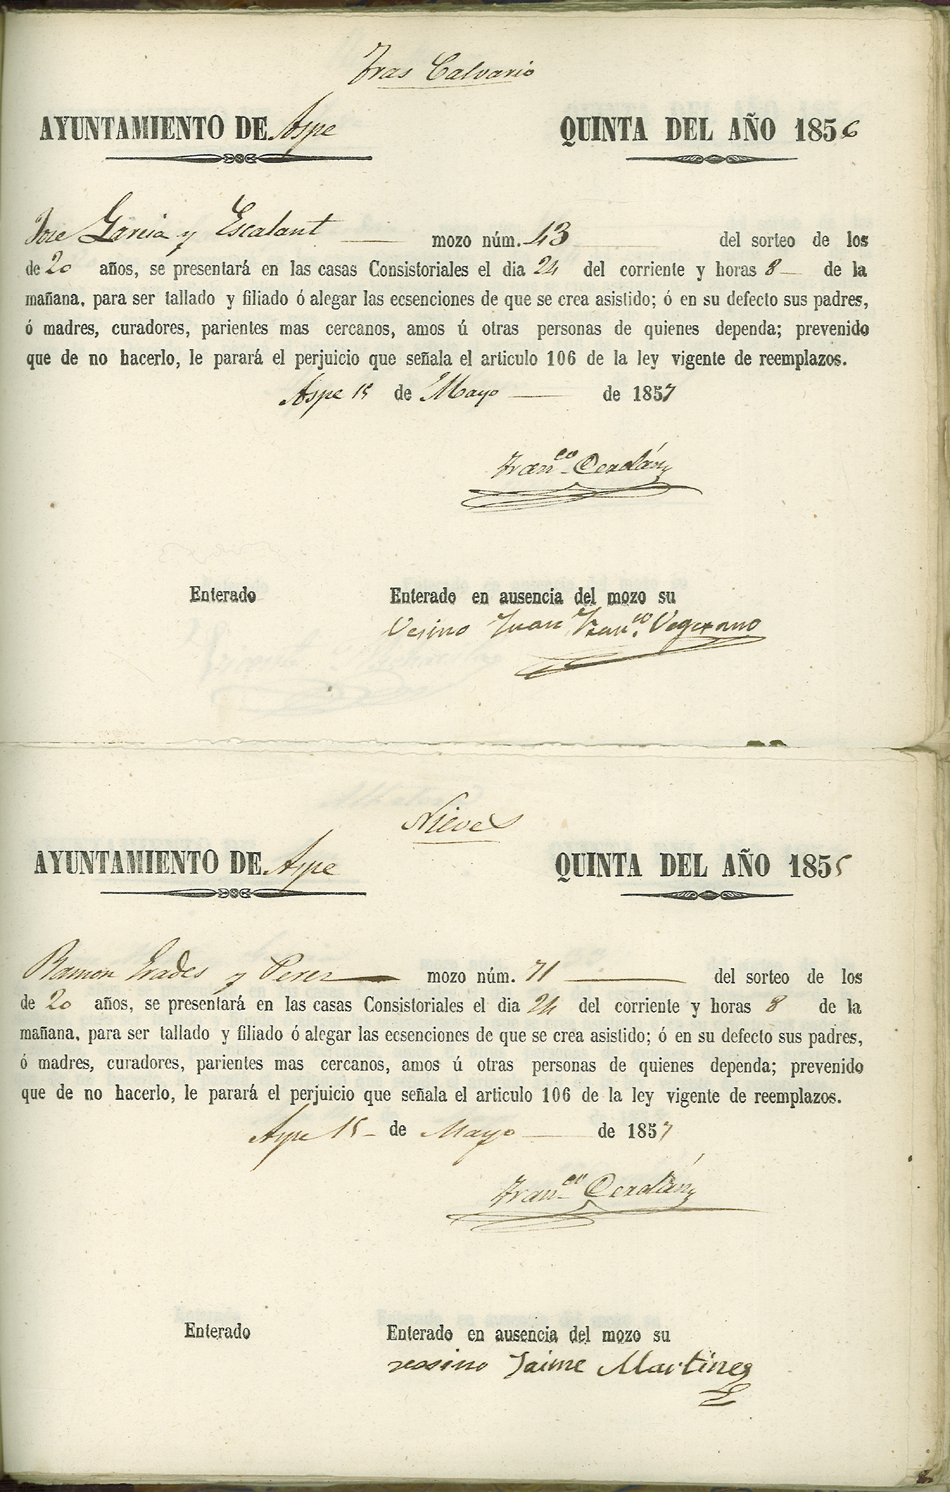 Tras Calvario
AYUNTAMIENTO DE Aspe QUINTA DEL AÑO 1856
Jose Garcia y Escalant mozo núm. 43 del sorteo de los
de 20 años, se presentará en las casas Consistoriales el dia 24 del corriente y horas 8 de la
mañana, para ser tallado y filiado ó alegar las ecsenciones de que se crea asistido; ó en su defecto sus padres,
ó madres, curadores, parientes mas cercanos, amos ú otras personas de quienes dependa; prevenido
que de no hacerlo, le parará el perjuicio que señala el articulo 106 de la ley vigente de reemplazos.
Aspe 15 de Mayo de 1857
Franco Cerdán
Enterado Enterado en ausencia del mozo su
Vesino Juan Franco
Nieves
AYUNTAMIENTO DE Aspe QUINTA DEL AÑO 1855
Ramon Prades y Perez mozo núm. 71 del sorteo de los
de 20 años, se presentará en las casas Consistoriales el dia 24 del corriente y horas 8 de la
mañana, para ser tallado y filiado ó alegar las ecsenciones de que se crea asistido; ó en su defecto sus padres,
ó madres, curadores, parientes mas cercanos, amos ú otras personas de quienes dependa; prevenido
que de no hacerlo, le parará el perjuicio que señala el articulo 106 de la ley vigente de reemplazos.
Aspe 15 de Mayo de 1857
Franco Cerdán
Enterado Enterado en ausencia del mozo su
vessino Jaime Martinez